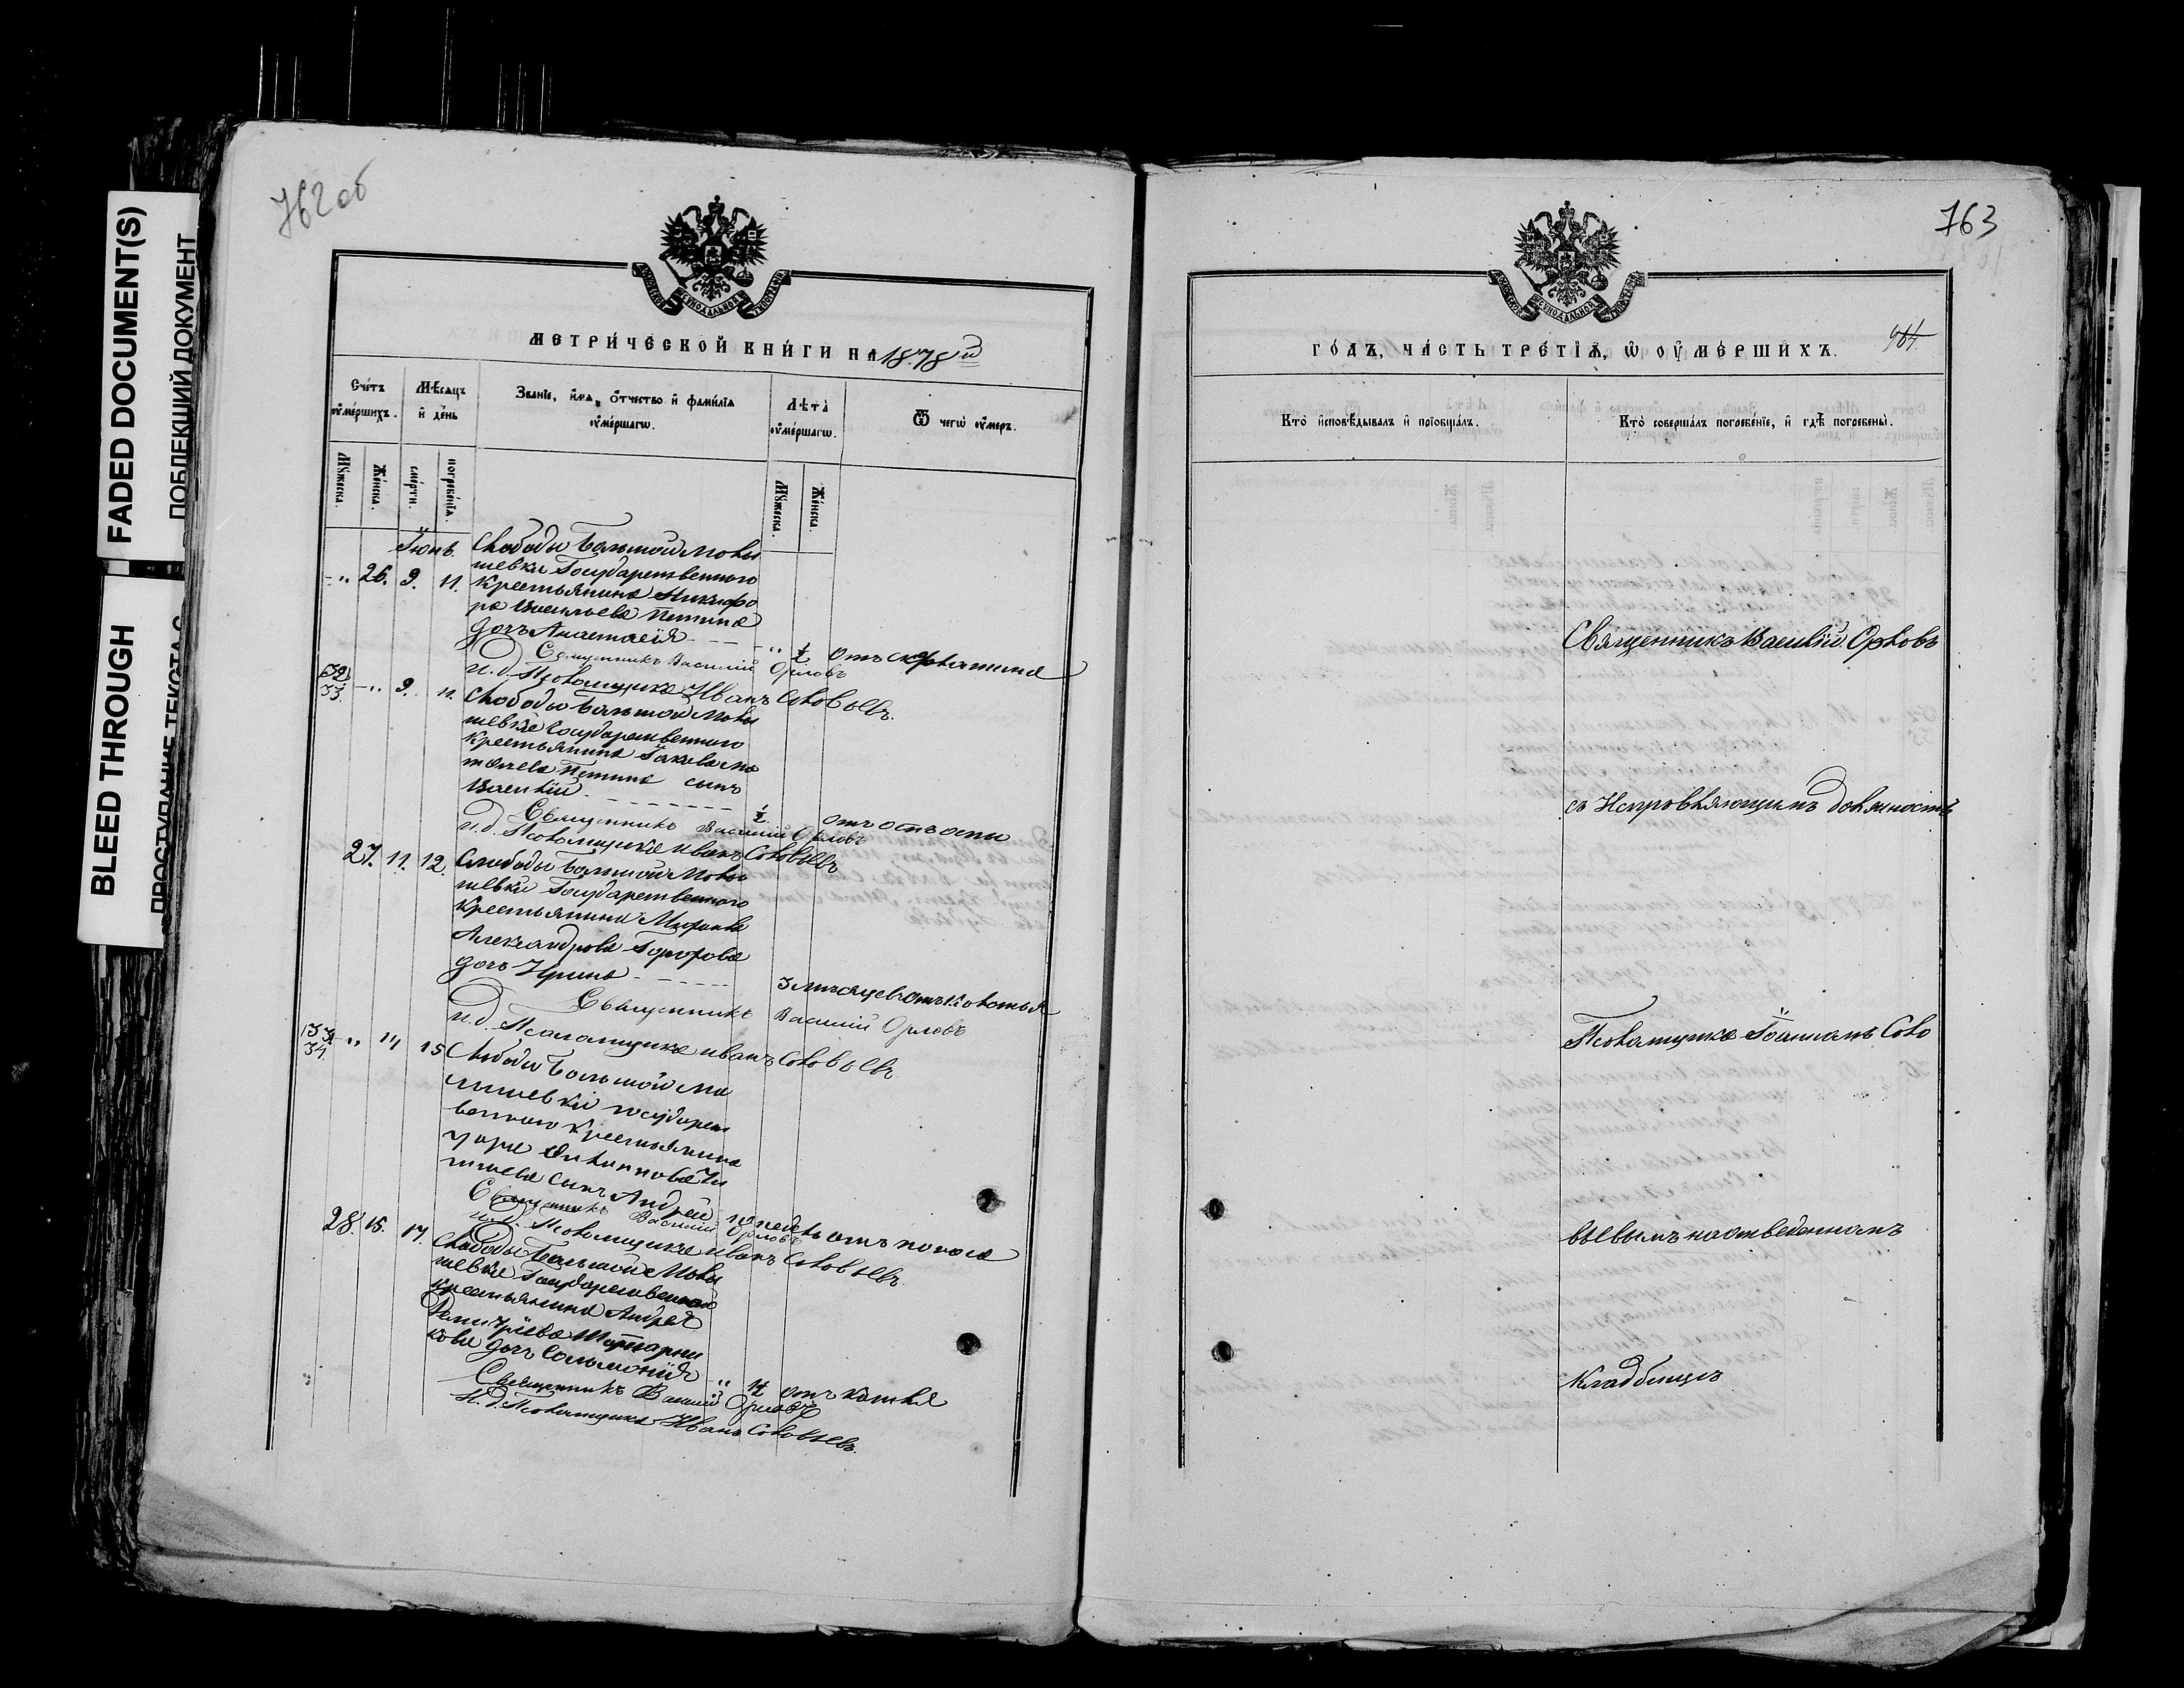 FADED DOCUMENT(S)
ПОБЛЕКШИЙ ДОКУМЕНТ
BLEED THROUGH
ПРОСТУПАНИЕ ТЕКСТА С
762 об
МЕТРИ́ЧЕСКОЙ КНИ́ГИ НА 1878 й
Сче́тъ ᲂу҆ме́ршихъ.
Мѣ́сяцъ и҆ де́нь
Зва́нїе, и҆́мя, ѻ҆́тчество и҆ фами́лїя ᲂу҆ме́ршагѡ.
Лѣ́та ᲂу҆ме́ршагѡ.
Ѿ чегѡ̀ ᲂу҆́меръ.
Мꙋ́жеска.
Же́нска.
сме́рти.
погребе́нїя.
Мꙋ́жеска.
Же́нска.
Іюнь.
Слободы Большой Мовы
шевки Государственнаго
" 26. 9. 11. крестьянина Никифо
ра Васильева
дочь Анастасія " ½ отъ скарлатина
Священникъ Василій Орловъ
и.д. Псаломщика Иванъ Соловьевъ.
32
33. " 9. 11. Слободы Большой Мовы
шевки Государственнаго
крестьянина Іакова
сынъ
Василій ½ отъ оспы
Священникъ Василій Орловъ
и.д. Псаломщика Иванъ Соловьевъ
27. 11. 12. Слободы Большой Мовы
шевки Государственнаго
крестьянина
Александрова
дочь Ирина 3 мѣсяцев отъ колотья
Священникъ Василій Орловъ
и.д. Псаломщика Иванъ Соловьевъ
33
34 " 14 15 Слободы Большой
шевки государст
веннаго крестьянина
сынъ Андрей недѣль отъ поноса
Священникъ Василій Орловъ
и.д. Псаломщика Иванъ Соловьевъ.
28. 15. 17. Слободы Большой Мовы
шевки Государственнаго
крестьянина Андрея
Димитріева
кова дочь Соломонія " ½ отъ кашля
Священникъ Василій Орловъ
И.д. Псаломщика Иванъ Соловьевъ.
763
ГО́ДЪ, ЧА́СТЬ ТРЕ́ТЇѦ, Ѡ҆ ОУ҆МЕ́РШИХЪ.
Кто̀ и҆сповѣ́дывалъ и҆ прїобща́лъ.
Кто̀ соверша́лъ погребе́нїе, и҆ гдѣ̀ погребены̀.
Священникъ Василій Орловъ
съ Исправляющимъ должность
Псаломщика Іоанномъ Соло
вьевымъ на отведенномъ
кладбищѣ